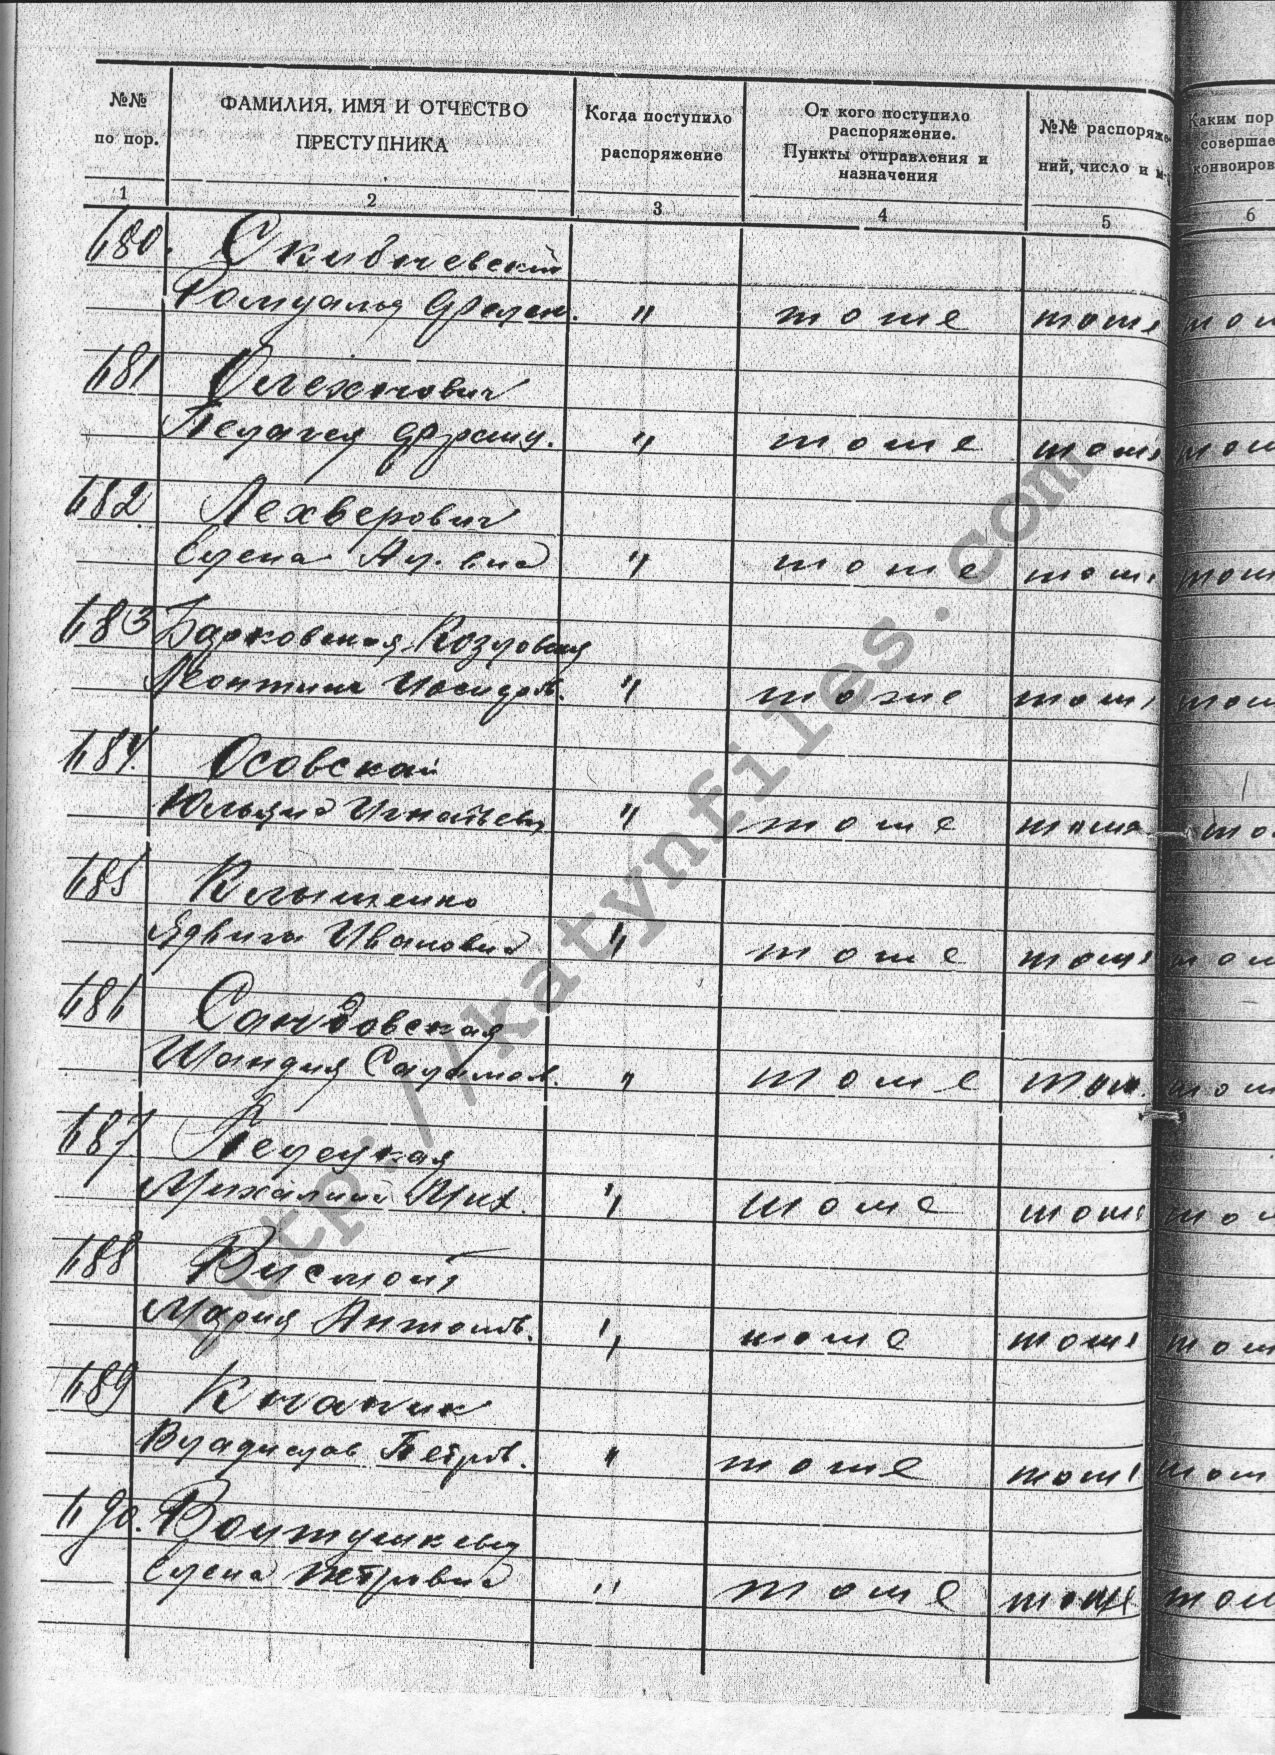 №№ по пор.
ФАМИЛИЯ, ИМЯ И ОТЧЕСТВО ПРЕСТУПНИКА
Когда поступило распоряжение
От кого поступило распоряжение. Пункты отправления и назначения
№№ распоряже- ний, число и м-
Каким пор
совершае
конвоиров
1 2 3 4 5 6
680.
Ромуальд " тоже тоже то
681 Олехнович
Пелагея Франц. " тоже тоже то
682 Лехверович
Елена Ал. вна " тоже тоже то
683 Барковская-Козловская
Леонтина " тоже тоже то
684. Осовская
Юльяна Игнатьевн " тоже тоже то
685 Клышенко
Ядвига Ивановна " тоже тоже то
686 Сандовская
" тоже тоже то
687
Михалина Мих. " тоже тоже то
688 Висмонт
Мария Антонов. " тоже тоже то
689
Владислав Петров. " тоже тоже то
690. Войтушкевич
Елена Петровна " тоже тоже то
http://katynfiles.com